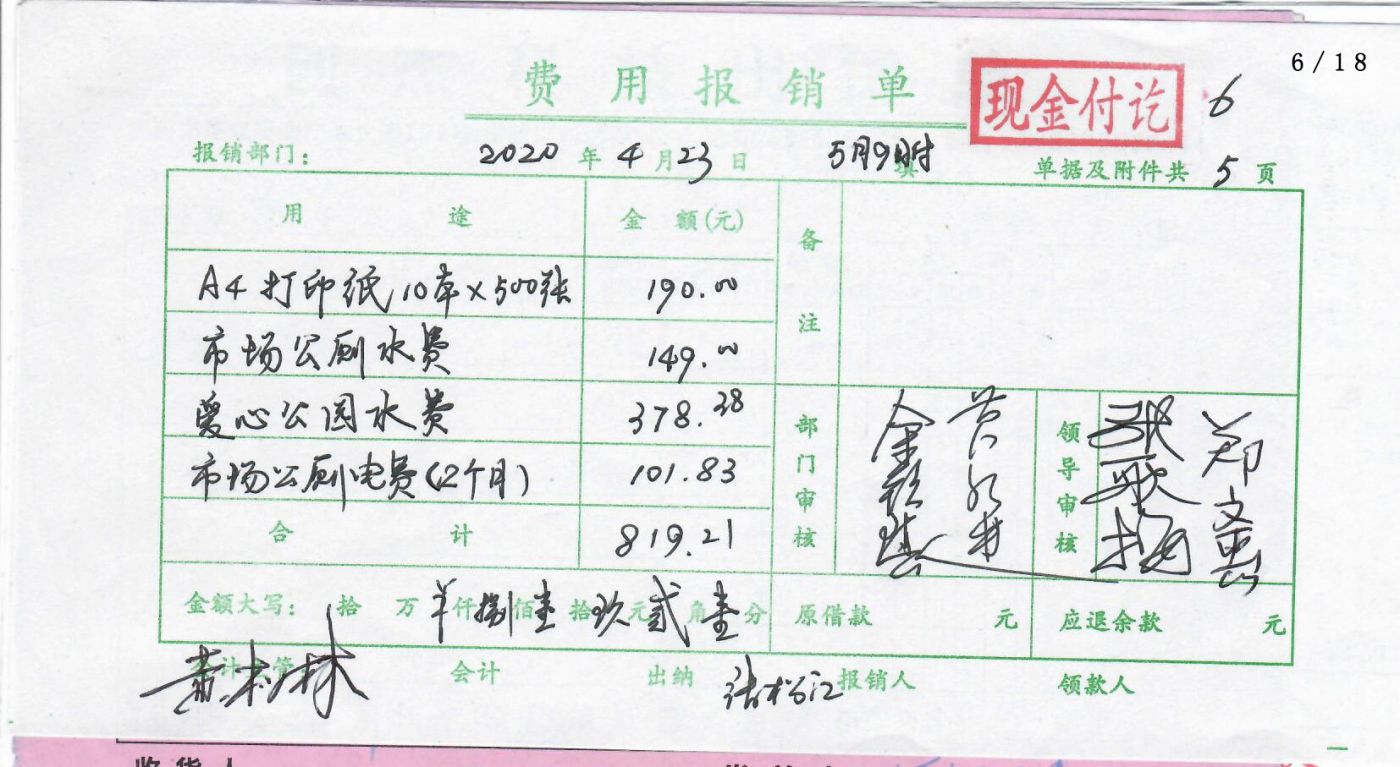 6/18
费用报销单 现金付讫 6
报销部门： 2020年4月23日 5月9日附 单据及附件共5页
用途 金额(元) 备注
A4打印纸10本×500张 190.00
市场公厕水费 149.00
爱心公园水费 378.38
市场公厕电费(2个月) 101.83
合计 819.21
部门审核 领导审核
金额大写： 拾 万 仟捌佰壹拾玖元贰角壹分 原借款 元 应退余款 元
会计 出纳 张松江 报销人 领款人
收货人